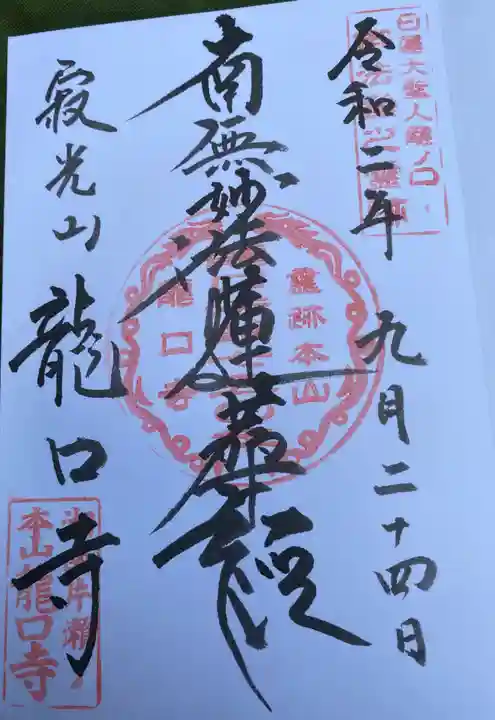 日蓮大聖人龍ノ口
令和二年 九月二十四日
南無妙法蓮華経
靈跡本山
龍口寺
寂光山 龍口寺
本山龍口寺